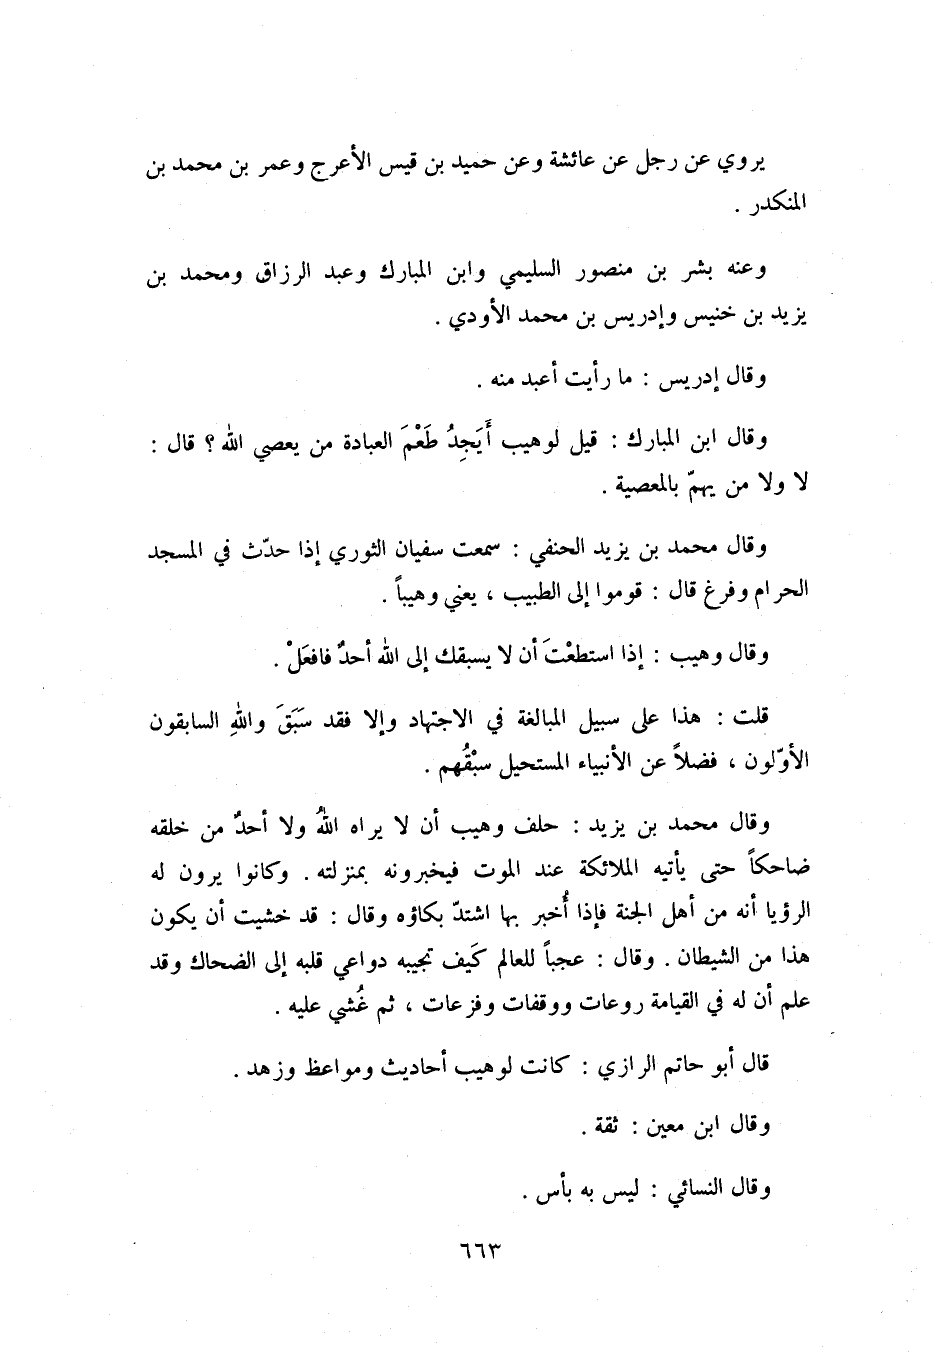 يروي عن رجل عن عائشة وعن حميد بن قيس الأعرج وعمر بن محمد بن
المنكدر .
وعنه بشر بن منصور السليمي وابن المبارك وعبد الرزاق ومحمد بن
يزيد بن خنيس وإدريس بن محمد الأودي .
وقال إدريس : ما رأيت أعبد منه .
وقال ابن المبارك : قيل لوهيب أَيَجِدُ طَعْمَ العبادة من يعصي الله ؟ قال :
لا ولا من يهمّ بالمعصية .
وقال محمد بن يزيد الحنفي : سمعت سفيان الثوري إذا حدّث في المسجد
الحرام وفرغ قال : قوموا إلى الطبيب ، يعني وهيباً .
وقال وهيب : إذا استطعْتَ أن لا يسبقك إلى الله أحدٌ فافعَلْ .
قلت : هذا على سبيل المبالغة في الاجتهاد وإلا فقد سَبَقَ واللهِ السابقون
الأوّلون ، فضلاً عن الأنبياء المستحيل سبْقُهم .
وقال محمد بن يزيد : حلف وهيب أن لا يراه اللهُ ولا أحدٌ من خلقه
ضاحكاً حتى يأتيه الملائكة عند الموت فيخبرونه بمنزلته . وكانوا يرون له
الرؤيا أنه من أهل الجنة فإذا أُخبر بها اشتدّ بكاؤه وقال : قد خشيت أن يكون
هذا من الشيطان . وقال : عجباً للعالم كَيف تجيبه دواعي قلبه إلى الضحاك وقد
علم أن له في القيامة روعات ووقفات وفزعات ، ثم غُشي عليه .
قال أبو حاتم الرازي : كانت لوهيب أحاديث ومواعظ وزهد .
وقال ابن معين : ثقة .
وقال النسائي : ليس به بأس .
٦٦٣